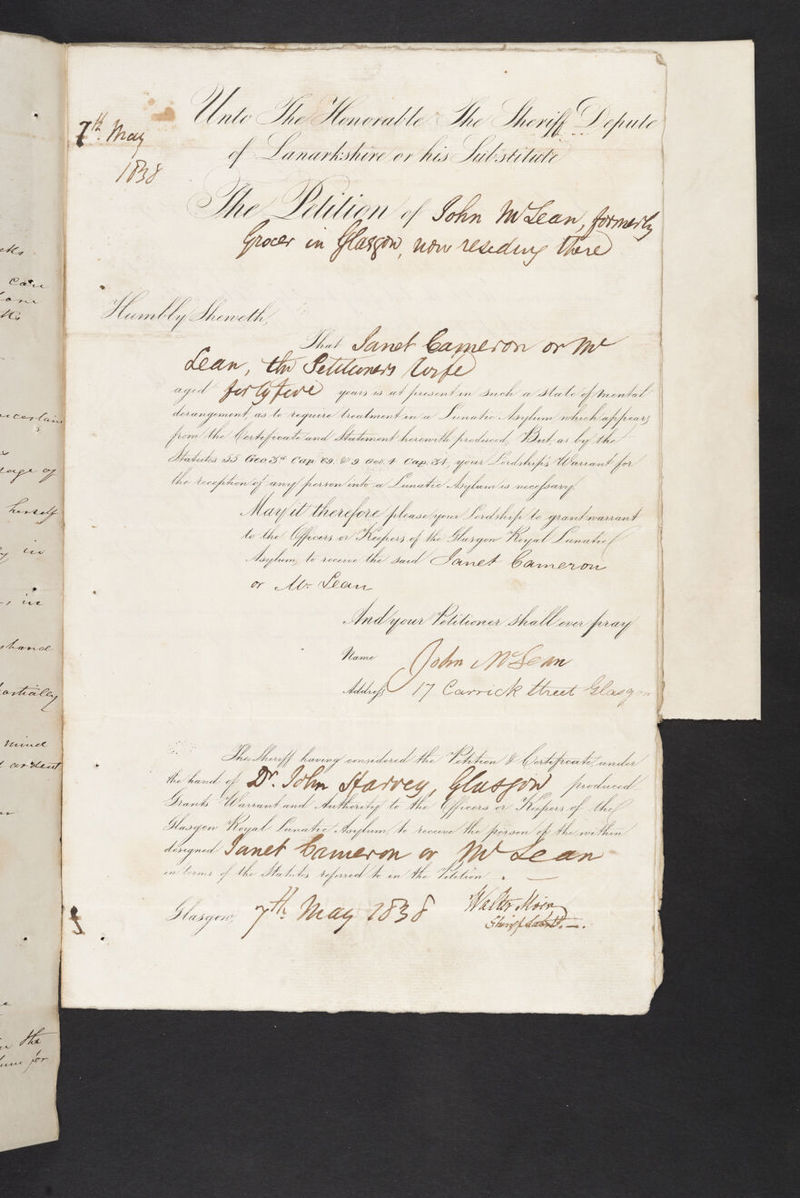 7th May
1838
Unto The Honorable The Sheriff Depute
of Lanarkshire or his Substitute
The Petition of John McLean, formerly
Grocer in Glasgow, now residing there
Humbly Sheweth,
That Janet Cameron or Mc
Lean, the Petitioners Wife
aged forty five years is at present in such a state of mental
derangement, as to require treatment in a Lunatic Asylum which appears
from the Certificate and Statement herewith produced, But, as by the
Statutes 55 Geo. 3d Cap. 69. & 9 Geo. 4 Cap. 34, your Lordship's Warrant for
the reception of any person into a Lunatic Asylum is necessary.
May it therefore please your Lordship to grant warrant
to the Officers or Keepers of the Glasgow Royal Lunatic
Asylum, to receive the said Janet Cameron
or Mc Lean
And your Petitioner shall ever pray
Name John McLean
Address 17 Carrick Street Glasgow
The Sheriff having considered the Petition & Certificate under
the hand of Dr. John Harvey, Glasgow produced
Grants Warrant and Authority to the Officers or Keepers of the
Glasgow Royal Lunatic Asylum, to receive the person of the within
designed Janet Cameron or Mc Lean
in terms of the Statutes referred to in the Petition.
Glasgow, 7th May 1838 Walter Moir
care
herself
in
in
partially
mind
the
for